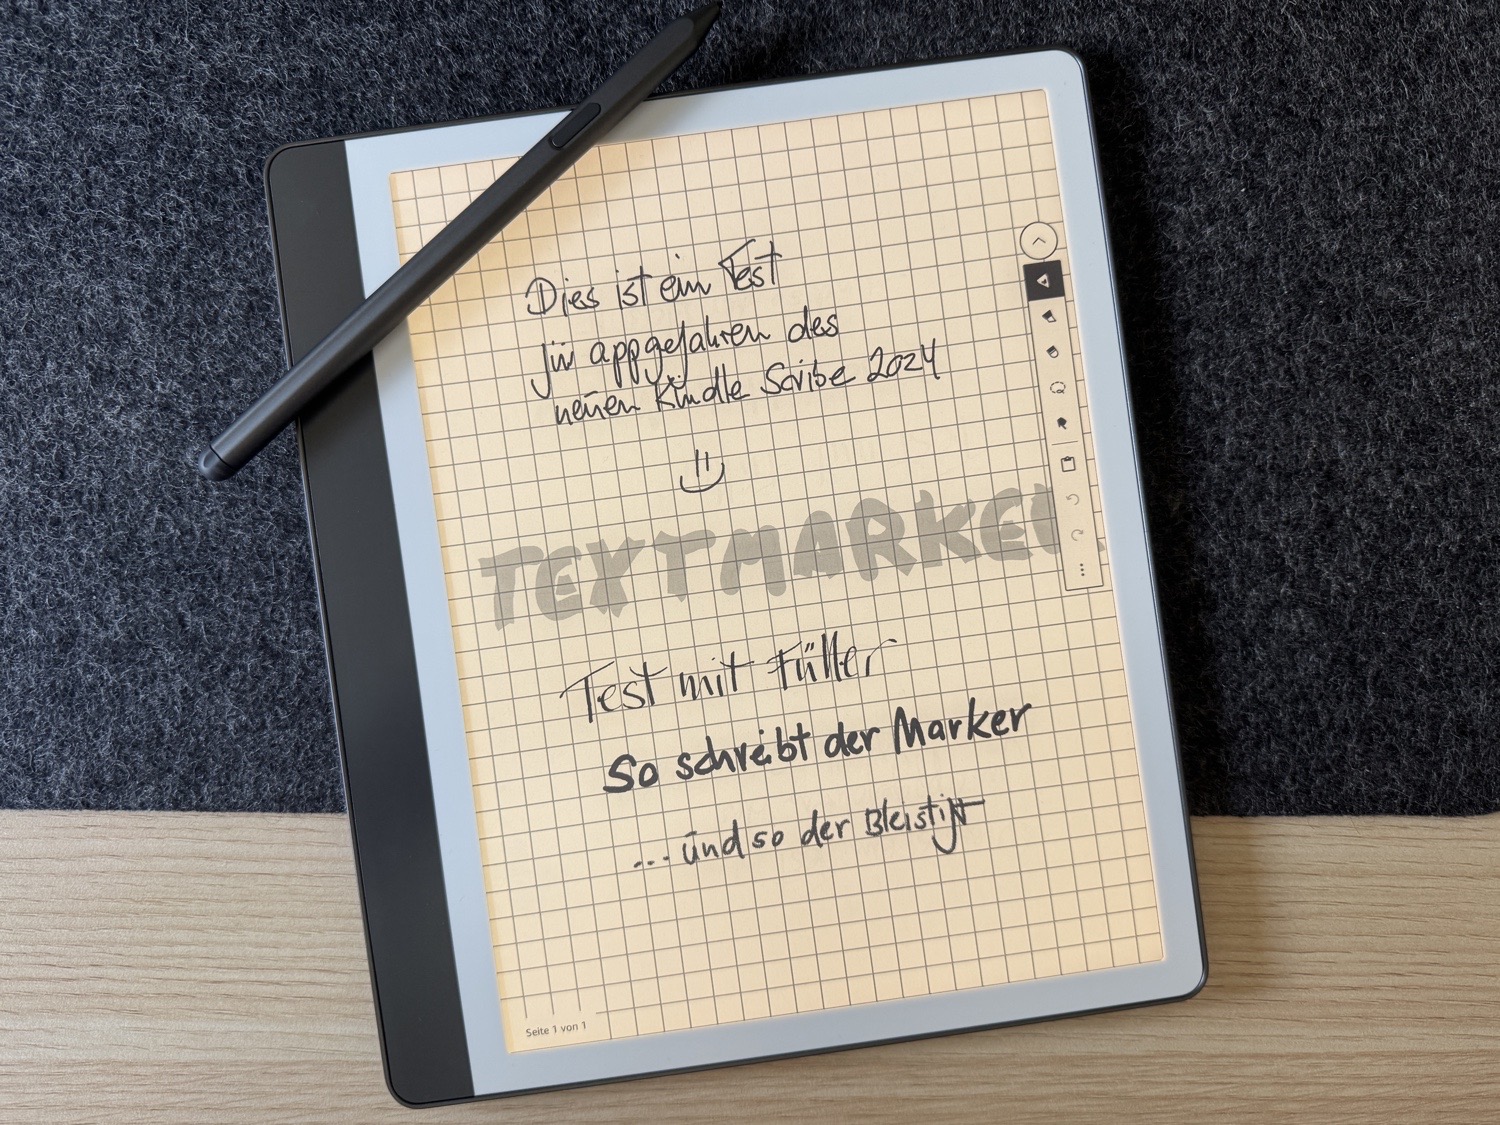 Dies ist ein Test
für appgefahren des
neuen Kindle Scribe 2024
TEXTMARKER
Test mit Füller
So schreibt der Marker
... und so der Bleistift
Seite 1 von 1